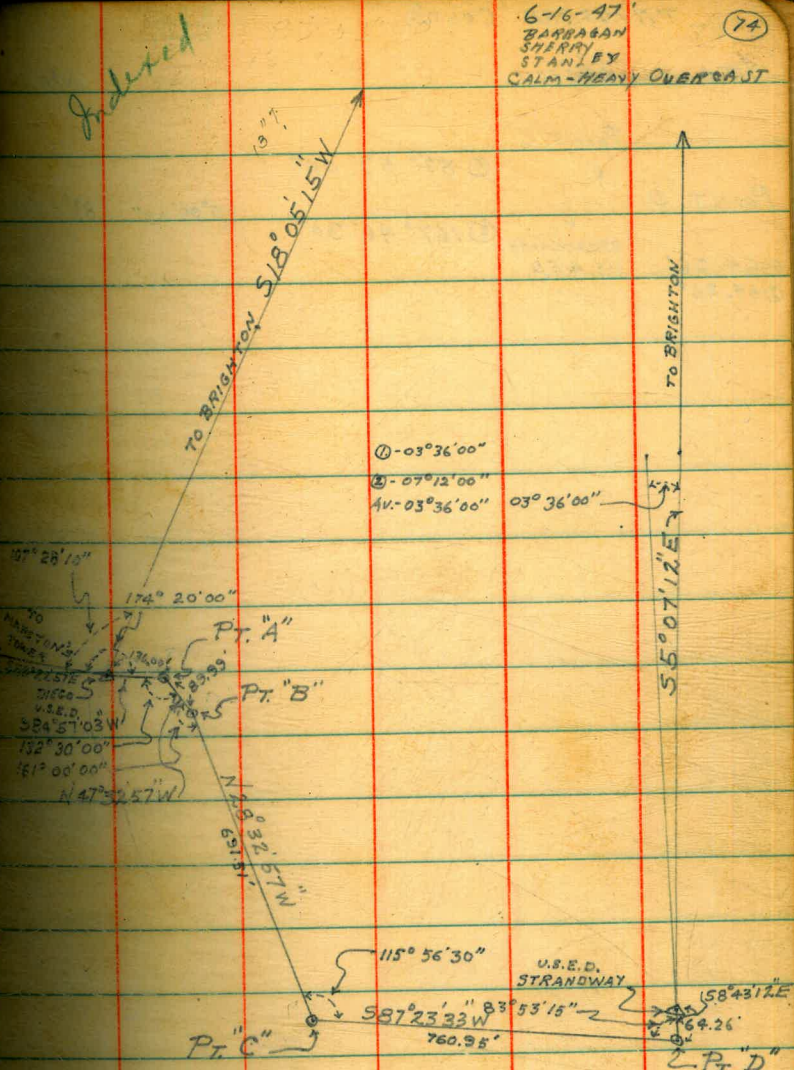 6-16-47
74
BARRAGAN
SHERRY
STANLEY
CALM-HEAVY OVERCAST
Indexed
13"↑
TO BRIGHTON S18°05'15"W
TO BRIGHTON
①-03°36'00"
②-07°12'00"
AV.-03°36'00" 03°36'00"
S5°07'12"E
107°28'10"
174° 20'00"
TO
MARSTON'S
TOWER
PT. "A"
136.00'
89.99'
DIEGO
U.S.E.D.
PT. "B"
S84°57'03"W
132°30'00"
161°00'00"
N47°32'57"W
N28°32'57"W
691.51'
115°56'30"
U.S.E.D.
STRANDWAY
S87°23'33"W
83°53'15"
S8°43'12"E
64.26'
760.95'
PT. "C"
PT. "D"